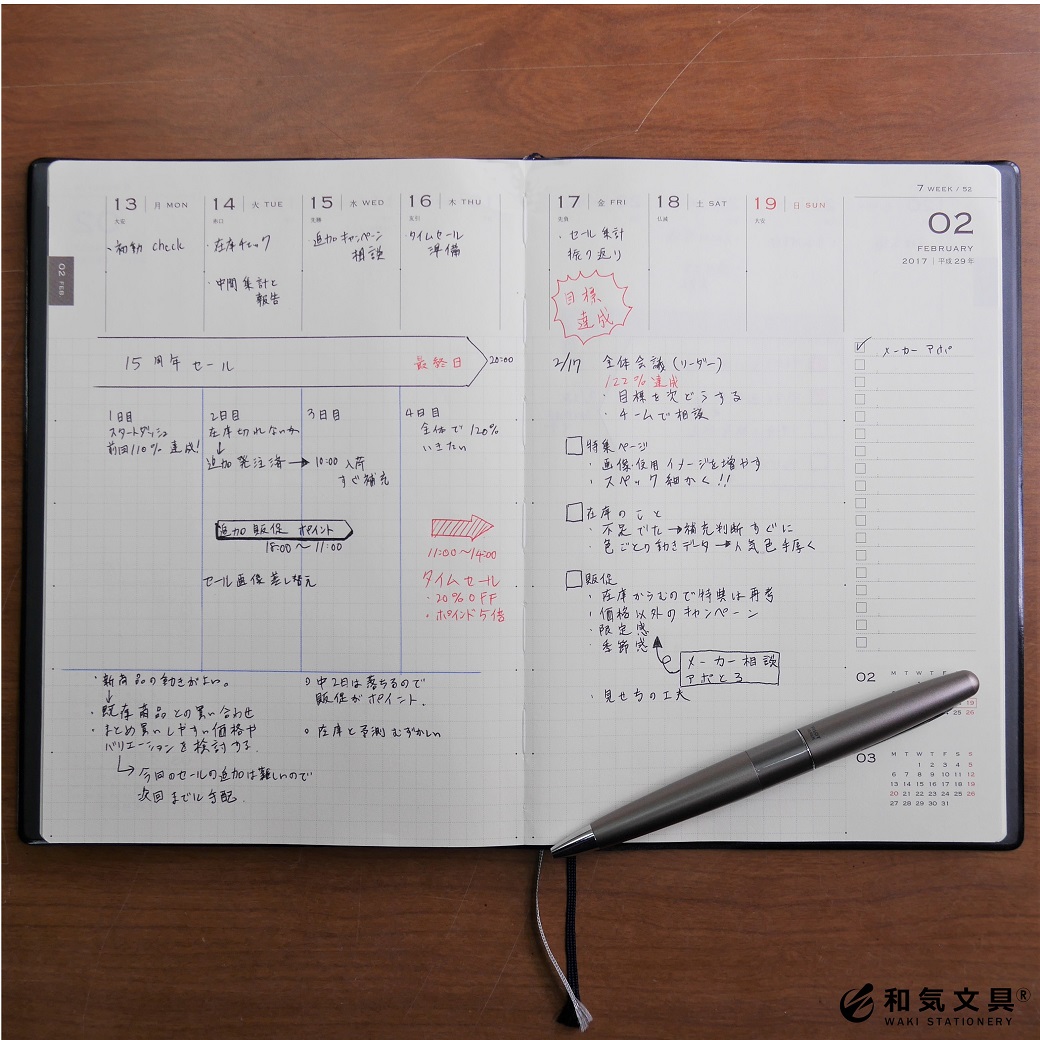 13 月 MON
大安
・初動 check
14 火 TUE
赤口
・在庫チェック
・中間集計と
報告
15 水 WED
先勝
追加キャンペーン
相談
16 木 THU
友引
タイムセール
準備
02 FEB.
15周年セール
最終日
20:00
1日目
スタートダッシュ
前回110% 達成!
2日目
在庫切れないか
↓
追加発注済 →
3日目
10:00 入荷
すぐ補充
4日目
全体で120%
いきたい
追加販促 ポイント
18:00〜11:00
セール画像差し替え
11:00〜14:00
タイムセール
・20%OFF
・ポイント5倍
・新商品の動きがよい。
↓
・既存商品との買い合わせ
・まとめ買いしやすい価格や
バリエーションを検討する.
→今回のセールの追加は難しいので
次回までに手配.
○中2日は落ちるので
販促がポイント.
○在庫と予測 むずかしい
17 金 FRI
先負
・セール集計
振り返り
目標
達成
18 土 SAT
仏滅
19 日 SUN
大安
7 WEEK / 52
02
FEBRUARY
2017 | 平成29年
メーカーアポ
2/17 全体会議(リーダー)
122%達成
・目標を次どうする
・チームで相談
□特集ページ
・画像・使用イメージを増やす
・スペック細かく!!
□在庫のこと
・不足でた→補充判断すぐに
・色ごとの動きデータ→人気色手厚く
□販促
・在庫かさむので特典は再考
・価格以外のキャンペーン
・限定感
・季節感
メーカー相談
アポとる
・見せ方の工夫
02
M T W T F S S
19
26
03
M T W T F S S
1 2 3 4 5
6 7 8 9 10 11 12
13 14 15 16 17 18 19
20 21 22 23 24 25 26
27 28 29 30 31
和気文具®
WAKI STATIONERY